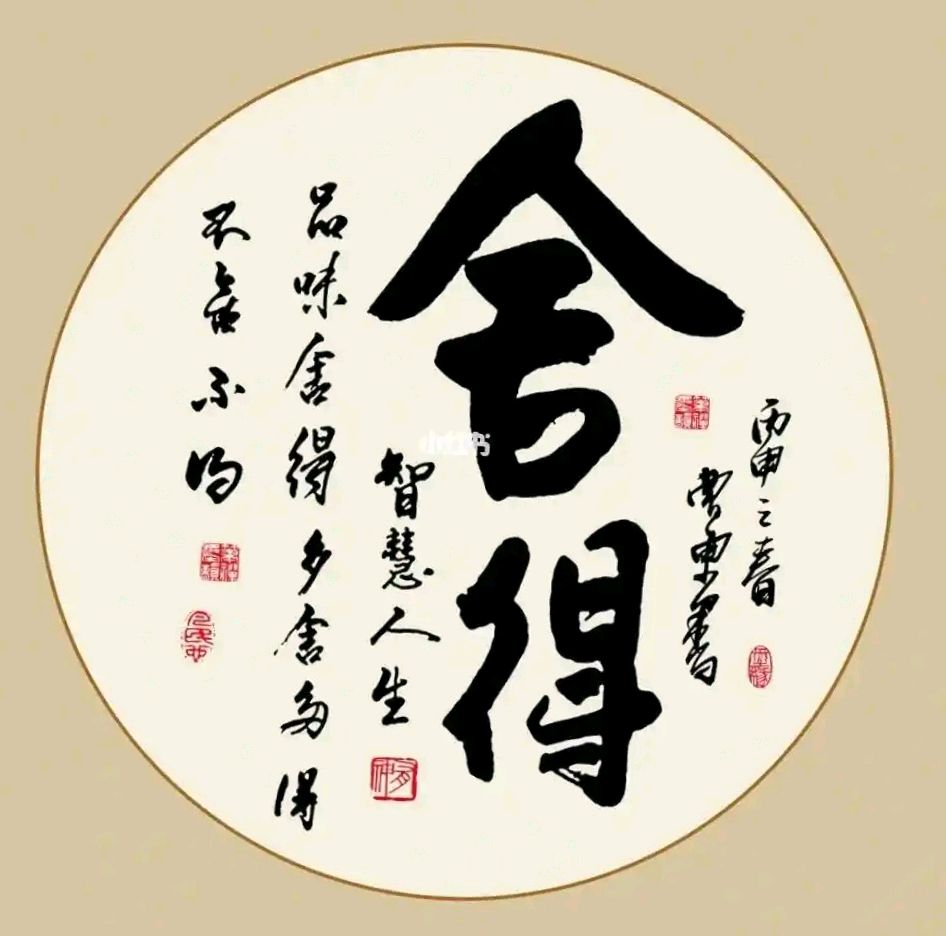 丙申之春
曹 書
舍得
智慧人生
品味舍得多舍多得
不舍不得
小红书